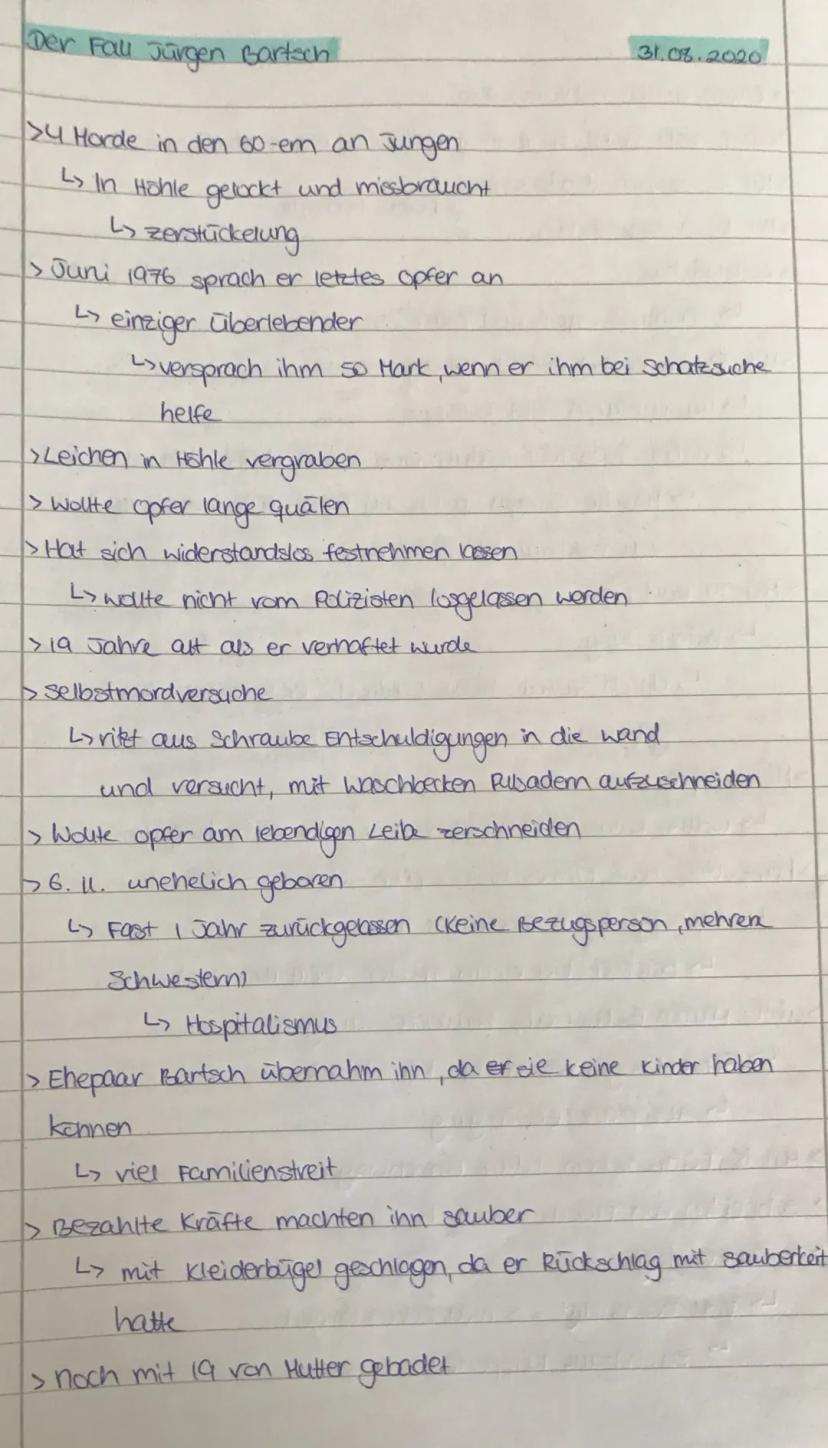 Der Fall Jürgen Bartsch 31.08.2020
>4 Morde in den 60-ern an Jungen
↳ In Höhle gelockt und missbraucht
↳ zerstückelung
> Juni 1976 sprach er letztes Opfer an
↳ einziger überlebender
↳ versprach ihm 50 Mark, wenn er ihm bei Schatzsuche
helfe
> Leichen in Höhle vergraben
> Wollte Opfer lange quälen
> Hat sich widerstandslos festnehmen lassen
↳ wollte nicht vom Polizisten losgelassen werden
> 19 Jahre alt als er verhaftet wurde
> Selbstmordversuche
↳ ritzt aus Schraube Entschuldigungen in die Wand
und versucht, mit Waschbecken Pulsadern aufzuschneiden
> Wollte Opfer am lebendigen Leibe zerschneiden
> 6. 11. unehelich geboren
↳ Fast 1 Jahr zurückgelassen (keine Bezugsperson, mehrere
Schwestern)
↳ Hospitalismus
> Ehepaar Bartsch übernahm ihn, da er sie keine Kinder haben
können
↳ viel Familienstreit
> Bezahlte Kräfte machten ihn sauber
↳ mit Kleiderbügel geschlagen, da er Rückschlag mit Sauberkeit
hatte
> noch mit 19 von Mutter gebadet